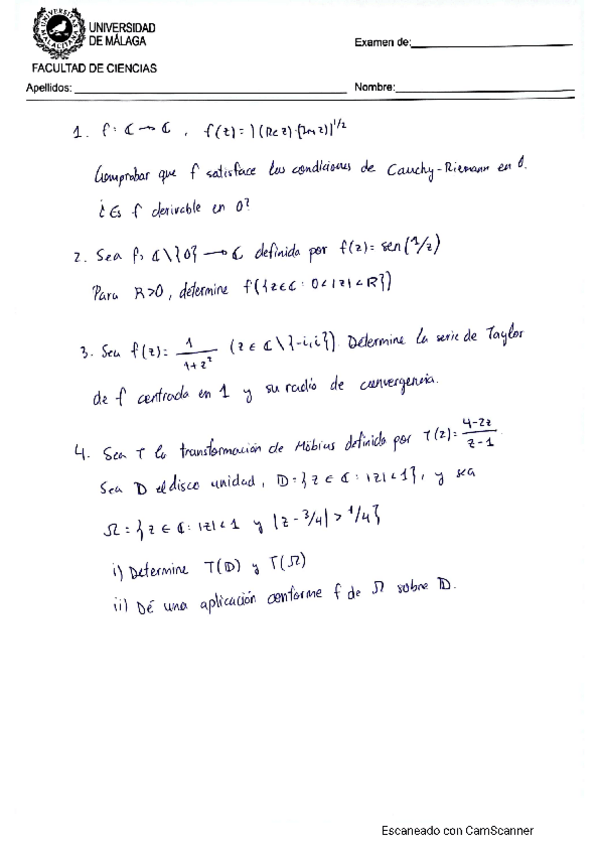 UNIVERSIDAD
DE MÁLAGA
Examen de:
FACULTAD DE CIENCIAS
Apellidos:
Nombre:
1. f: ℂ → ℂ, f(z) = |(Re z)·(Im z)|^{1/2}
Comprobar que f satisface las condiciones de Cauchy-Riemann en 0.
¿Es f derivable en 0?
2. Sea f: ℂ\{0} → ℂ definida por f(z) = sen(1/z)
Para R>0, determine f({z∈ℂ : 0<|z|<R})
3. Sea f(z) = 1/(1+z²) (z ∈ ℂ\{-i,i}). Determine la serie de Taylor
de f centrada en 1 y su radio de convergencia.
4. Sea T la transformación de Möbius definida por T(z) = (4-2z)/(z-1).
Sea D el disco unidad, D = {z ∈ ℂ : |z| < 1}, y sea
Ω = {z ∈ ℂ : |z| < 1 y |z - 3/4| > 1/4}
i) Determine T(D) y T(Ω)
ii) Dé una aplicación conforme f de Ω sobre D.
Escaneado con CamScanner